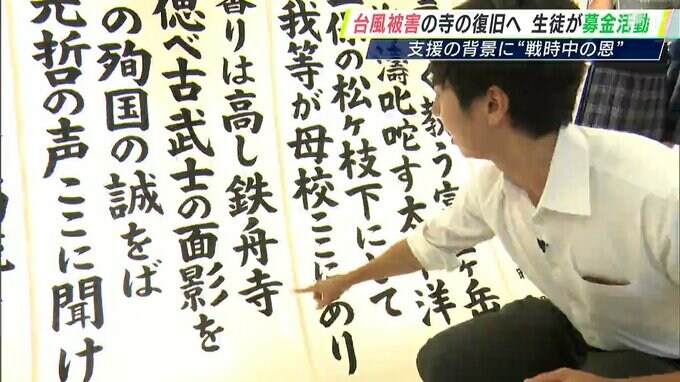 台風被害の寺の復旧へ 生徒が募金活動
支援の背景に“戦時中の恩”
教う
ヶ岳
濤叱咤す太
洋
保の松ヶ枝下にして
我等が母校ここにあり
香りは高し鉄舟寺
べ古武士の面影を
の殉国の誠をば
哲の声ここに聞け